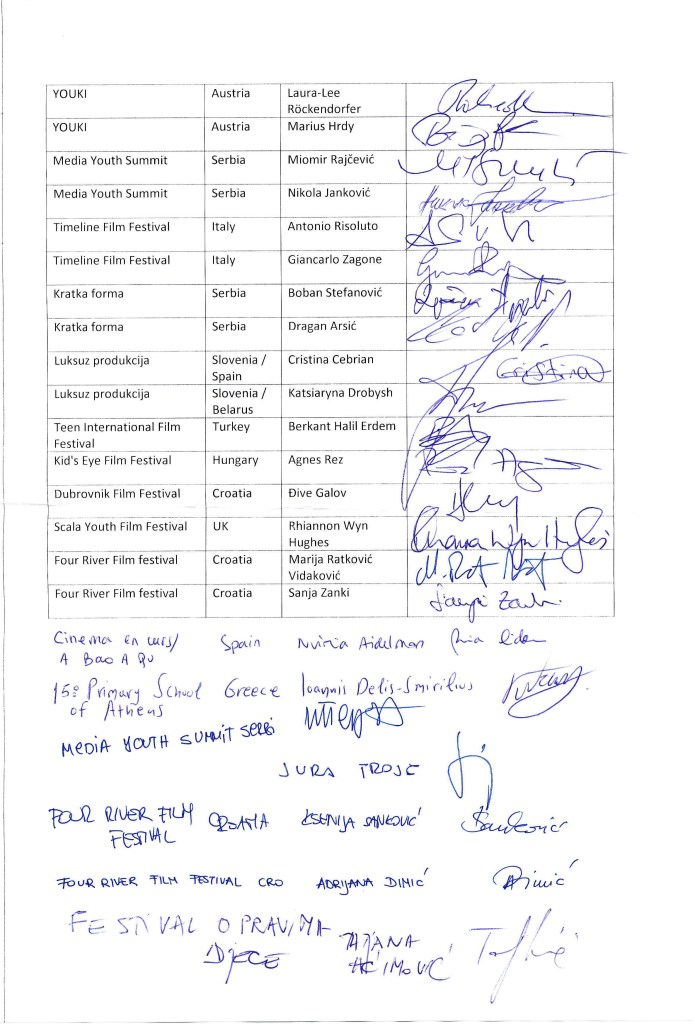 YOUKI Austria Laura-Lee
Röckendorfer
YOUKI Austria Marius Hrdy
Media Youth Summit Serbia Miomir Rajčević
Media Youth Summit Serbia Nikola Janković
Timeline Film Festival Italy Antonio Risoluto
Timeline Film Festival Italy Giancarlo Zagone
Kratka forma Serbia Boban Stefanović
Kratka forma Serbia Dragan Arsić
Luksuz produkcija Slovenia / Cristina Cebrian Cristina
Spain
Luksuz produkcija Slovenia / Katsiaryna Drobysh
Belarus
Teen International Film Turkey Berkant Halil Erdem
Festival
Kid's Eye Film Festival Hungary Agnes Rez
Dubrovnik Film Festival Croatia Đive Galov
Scala Youth Film Festival UK Rhiannon Wyn
Hughes
Four River Film festival Croatia Marija Ratković
Vidaković
Four River Film festival Croatia Sanja Zanki
Cinema en curs/ Spain Núria Aidelman
A Bao A Qu
15º Primary School Greece Ioannis Delis-Smirilius
of Athens
MEDIA YOUTH SUMMIT
JURA TROJE
FOUR RIVER FILM CROATIA KSENIJA SANKOVIĆ Sanković
FESTIVAL
FOUR RIVER FILM FESTIVAL CRO ADRIJANA DIMIĆ Dimić
FESTIVAL O PRAVIMA TATJANA
DJECE AĆIMOVIĆ